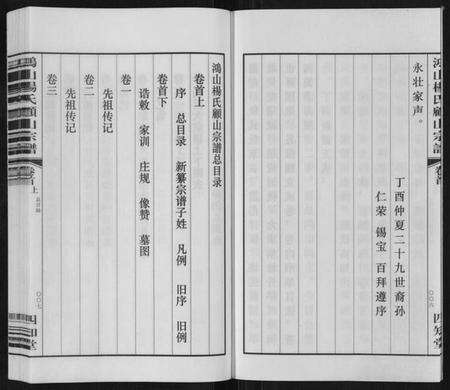 鸿山杨氏顾山宗譜
卷首
〇〇六
四知堂
永壮家声。
丁酉仲夏二十九世裔孙
仁荣 锡宝 百拜遵序
鸿山楊氏顧山宗譜总目录
卷首上
序 总目录 新纂宗谱子姓 凡例 旧序 旧例
卷首下
诰敕 家训 庄规 像赞 墓图
卷一
先祖传记
卷二
先祖传记
卷三
鸿山楊氏顧山宗譜
卷首上
总目録
〇〇七
四知堂